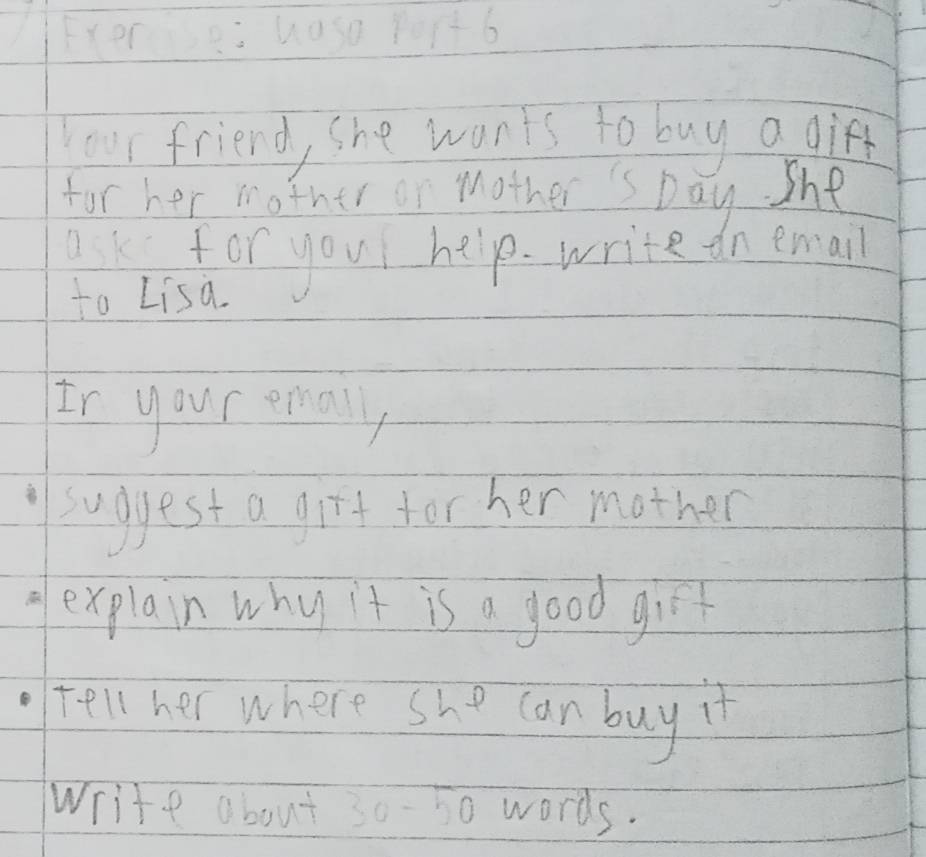 Exercise: uaso Part 6
Your friend, she wants to buy a gift
for her mother on Mother's Day. She
asks for your help. write an email
to Lisa.
In your email,
• suggest a gift for her mother
• explain why it is a good gift
• Tell her where she can buy it
Write about 30-50 words.